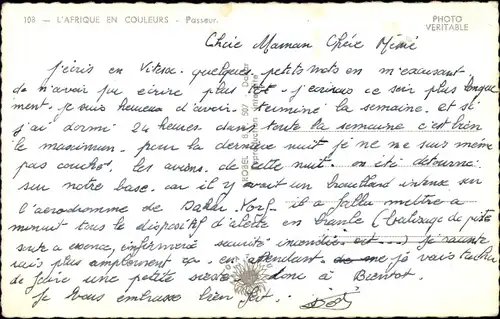 108 — L'AFRIQUE EN COULEURS - Passeur.
PHOTO VERITABLE
Chère Maman Chère Mémé
J'écris en Vitesse quelques petits mots en m'excusant
de n'avoir pu écrire plus tôt. j'écrirai ce soir plus longue
ment. je suis heureux d'avoir terminé la semaine. et si
j'ai dormi 24 heures dans toute la semaine c'est bien
le maximum. pour la dernière nuit je ne me suis même
pas couché. les avions de cette nuit on été détourné
sur notre base. car il y avait un brouillard intense sur
l'aérodrome de Dakar Yoff. il a fallu mettre a
minuit tous le dispositif d'alerte en branle (balisage de piste
essence, infirmerie sécurité incendies etc...) je raconte
rais plus amplement ça. en attendant je vais tacher
de faire une petite sieste donc à Bientot.
Je Vous embrasse bien fort.